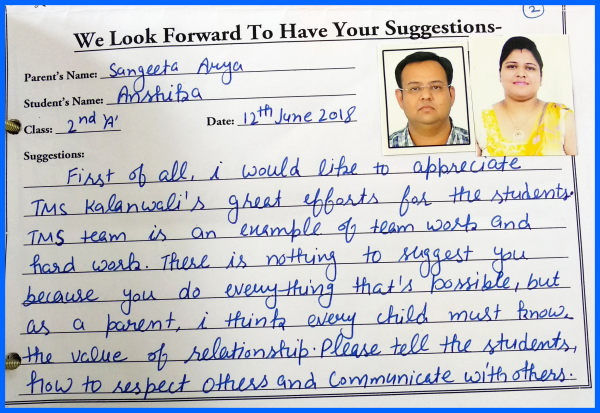 2
We Look Forward To Have Your Suggestions-
Parent's Name: Sangeeta Arya
Student's Name: Anshika
Class: 2nd 'A' Date: 12th June 2018
Suggestions:
First of all, i would like to appreciate
TMS Kalanwali's great efforts for the students.
TMS team is an example of team work and
hard work. There is nothing to suggest you
because you do everything that's possible, but
as a parent, i think every child must know
the value of relationship. Please tell the students,
how to respect others and communicate with others.